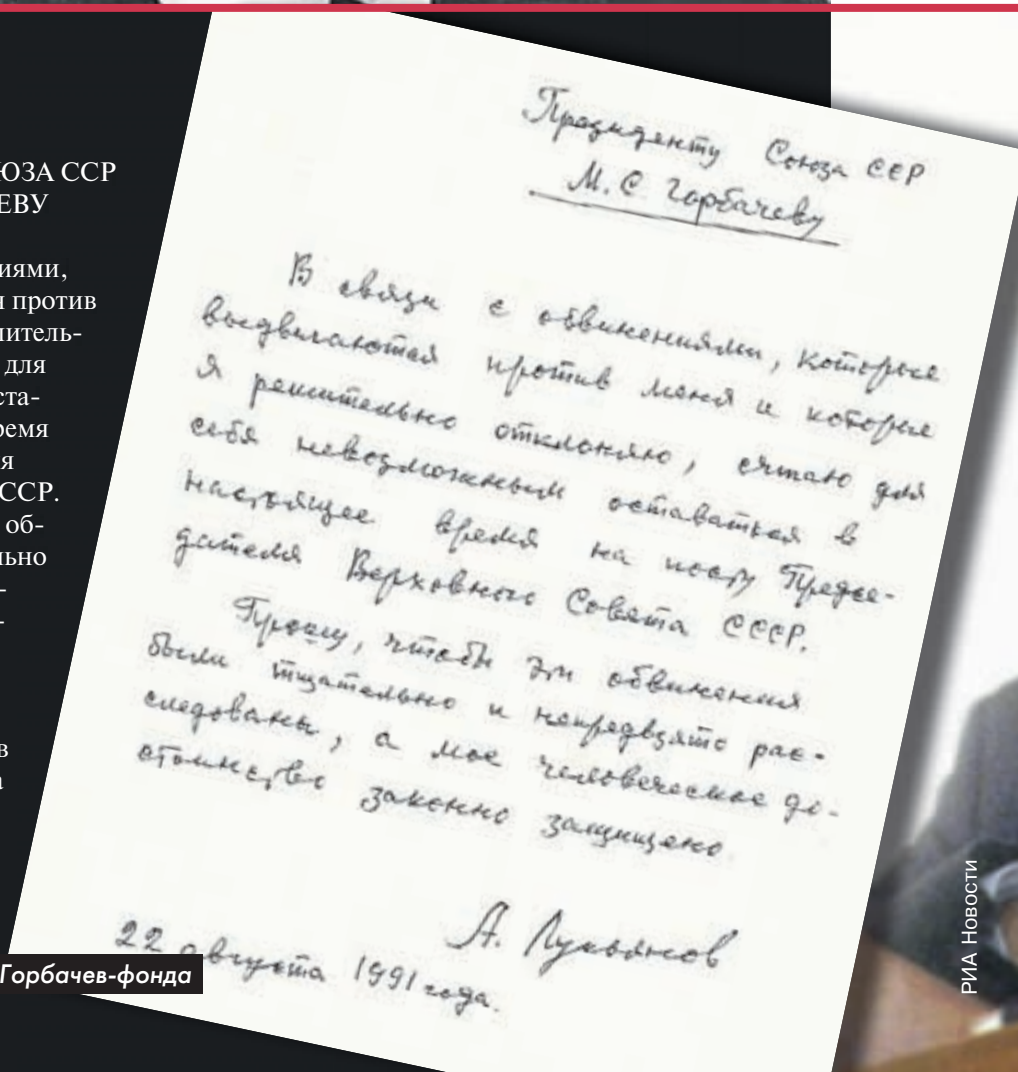 ЮЗА ССР
ЕВУ
иями,
против
итель-
для
ста-
ремя
я
СССР.
об-
льно
-
-
в
а
Президенту Союза ССР
М. С Горбачеву
В связи с обвинениями, которые
выдвигаются против меня и которые
я решительно отклоняю, считаю для
себя невозможным оставаться в
настоящее время на посту Предсе-
дателя Верховного Совета СССР.
Прошу, чтобы эти обвинения
были тщательно и непредвзято рас-
следованы, а мое человеческое до-
стоинство законно защищено
А. Лукьянов
22 августа 1991 года.
Горбачев-фонда
РИА Новости